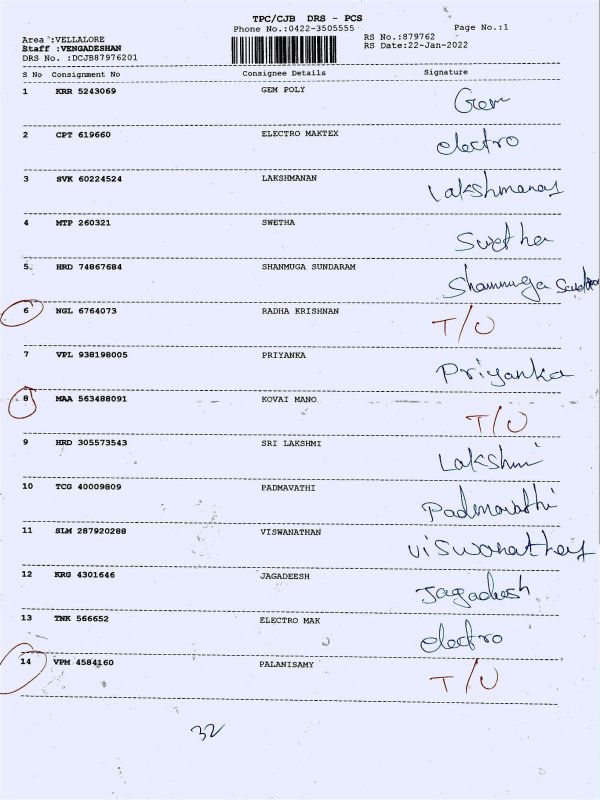 TPC/CJB DRS - PCS
Phone No.:0422-3505555 Page No.:1
Area :VELLALORE RS No.:879762
Staff :VENGADESHAN RS Date:22-Jan-2022
DRS No. :DCJB87976201
S No Consignment No Consignee Details Signature
1 KRR 5243069 GEM POLY Gem
2 CPT 619660 ELECTRO MAKTEX electro
3 SVK 60224524 LAKSHMANAN Lakshmanan
4 MTP 260321 SWETHA Swetha
5 HRD 74867684 SHANMUGA SUNDARAM Shanmuga
6 NGL 6764073 RADHA KRISHNAN T/U
7 VPL 938198005 PRIYANKA Priyanka
8 MAA 563488091 KOVAI MANO T/U
9 HRD 305573543 SRI LAKSHMI Lakshmi
10 TCG 40009809 PADMAVATHI Padmavathi
11 SLM 287920288 VISWANATHAN
12 KRG 4301646 JAGADEESH Jagadesh
13 TNK 566652 ELECTRO MAK electro
14 VPM 4584160 PALANISAMY T/U
32